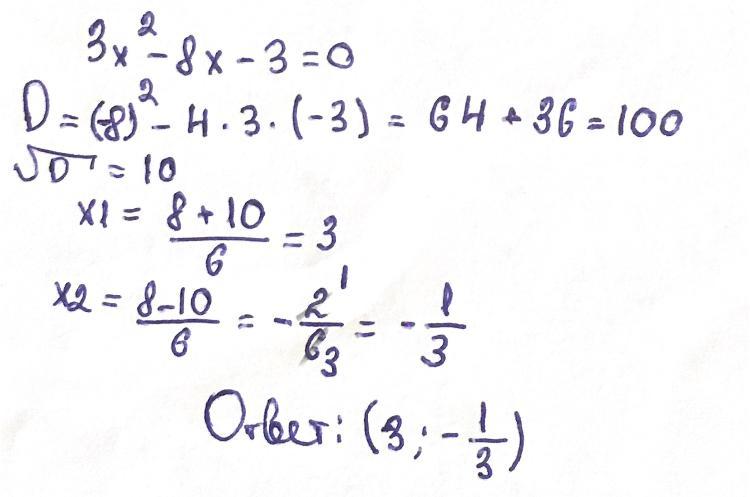 3x² - 8x - 3 = 0
D = (-8)² - 4 · 3 · (-3) = 64 + 36 = 100
√D = 10
x1 = (8 + 10)/6 = 3
x2 = (8 - 10)/6 = - 2¹/6₃ = - 1/3
Ответ: (3; - 1/3)